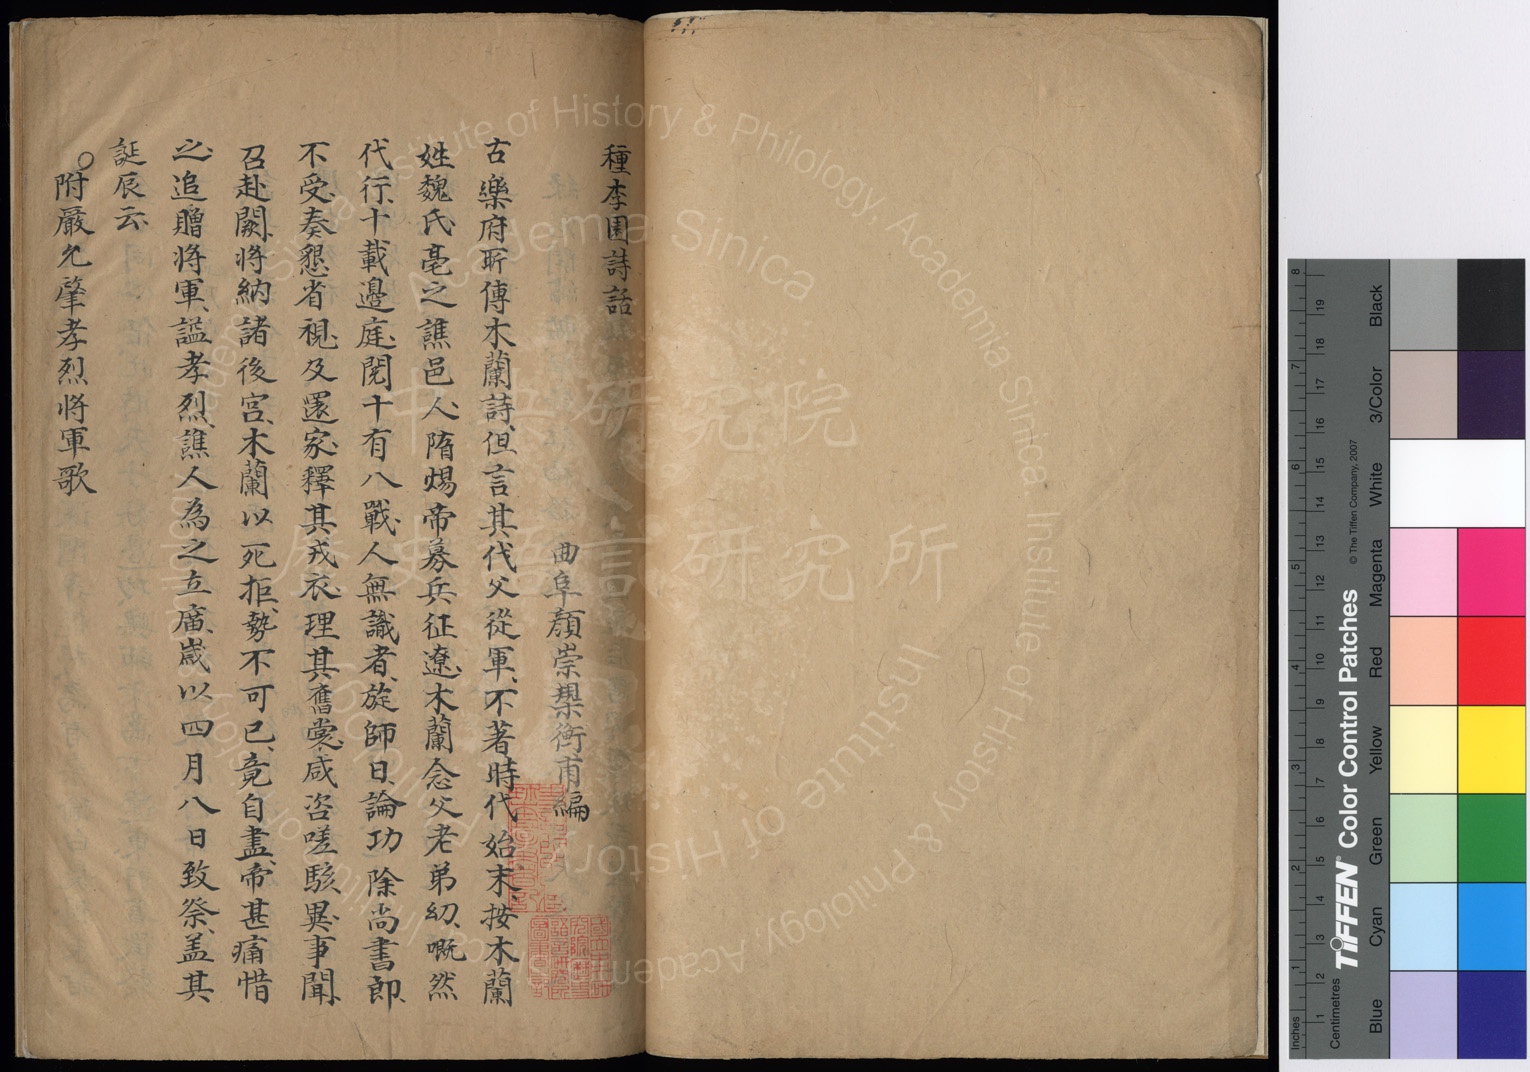 種李園詩話
曲阜顏崇槼衡甫編
古樂府所傳木蘭詩但言其代父從軍不著時代始末按木蘭
姓魏氏亳之譙邑人隋煬帝募兵征遼木蘭念父老弟幼嘅然
代行十載邊庭閱十有八戰人無識者旋師日論功除尚書郎
不受奏懇省視及還家釋其戎衣理其舊裳咸咨嗟駭異事聞
召赴闕將納諸後宮木蘭以死拒勢不可已竟自盡帝甚痛惜
之追贈將軍謚孝烈譙人為之立廟歲以四月八日致祭盖其
誕辰云
○附嚴允肇孝烈將軍歌
中央研究院
歷史語言研究所
Institute of History & Philology, Academia Sinica
TIFFEN® Color Control Patches
© The Tiffen Company, 2007
Inches
Centimetres
Blue
Cyan
Green
Yellow
Red
Magenta
White
3/Color
Black